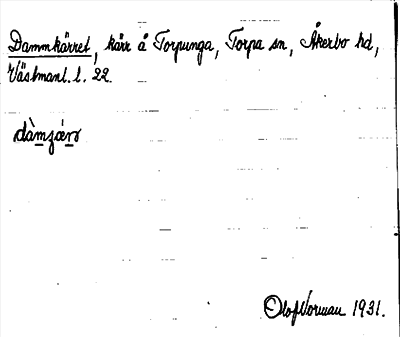 Dammkärret, kärr å Torpunga, Torpa sn, Åkerbo hd,
Västmanl. l. 22.
Olof Norman 1931.